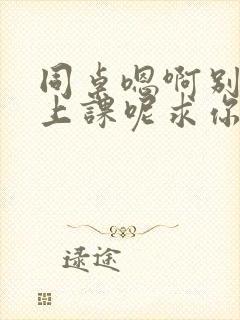 同桌嗯啊别
上課呢求你
逯途